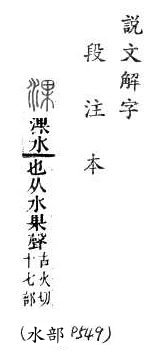 說文解字
段注本
淉
淉水也从水果聲古火切
十七部
(水部 P549)